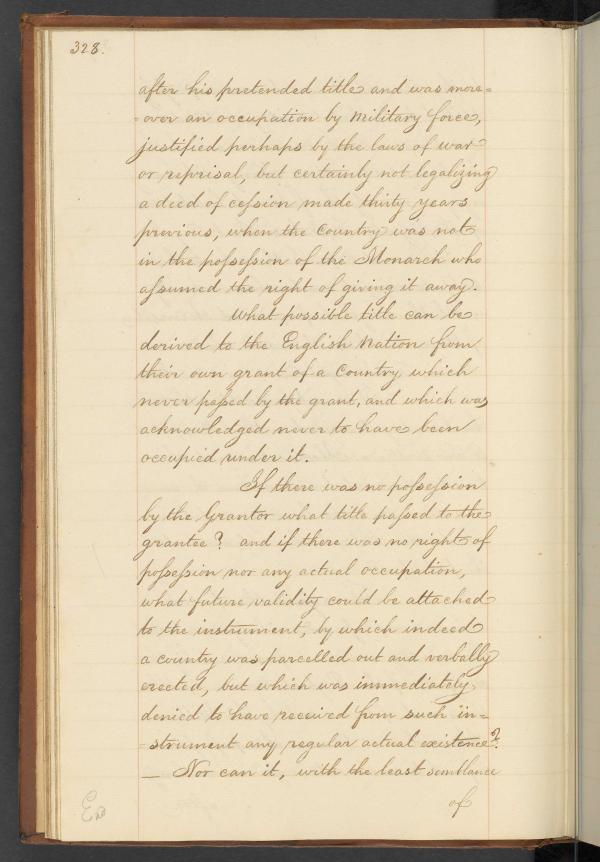 328.
after his pretended title and was more=
=over an occupation by military force,
justified perhaps by the laws of war
or reprisal, but certainly not legalizing
a deed of cession made thirty years
previous, when the Country was not
in the possession of the Monarch who
assumed the right of giving it away.
What possible title can be
derived to the English Nation from
their own grant of a Country which
never passed by the grant, and which was
acknowledged never to have been
occupied under it.
If there was no possession
by the Grantor what title passed to the
grantee? and if there was no right of
possession nor any actual occupation,
what future validity could be attached
to the instrument, by which indeed
a country was parcelled out and verbally
erected, but which was immediately
denied to have received from such in=
=strument any regular actual existence?
— Nor can it, with the least semblance
of